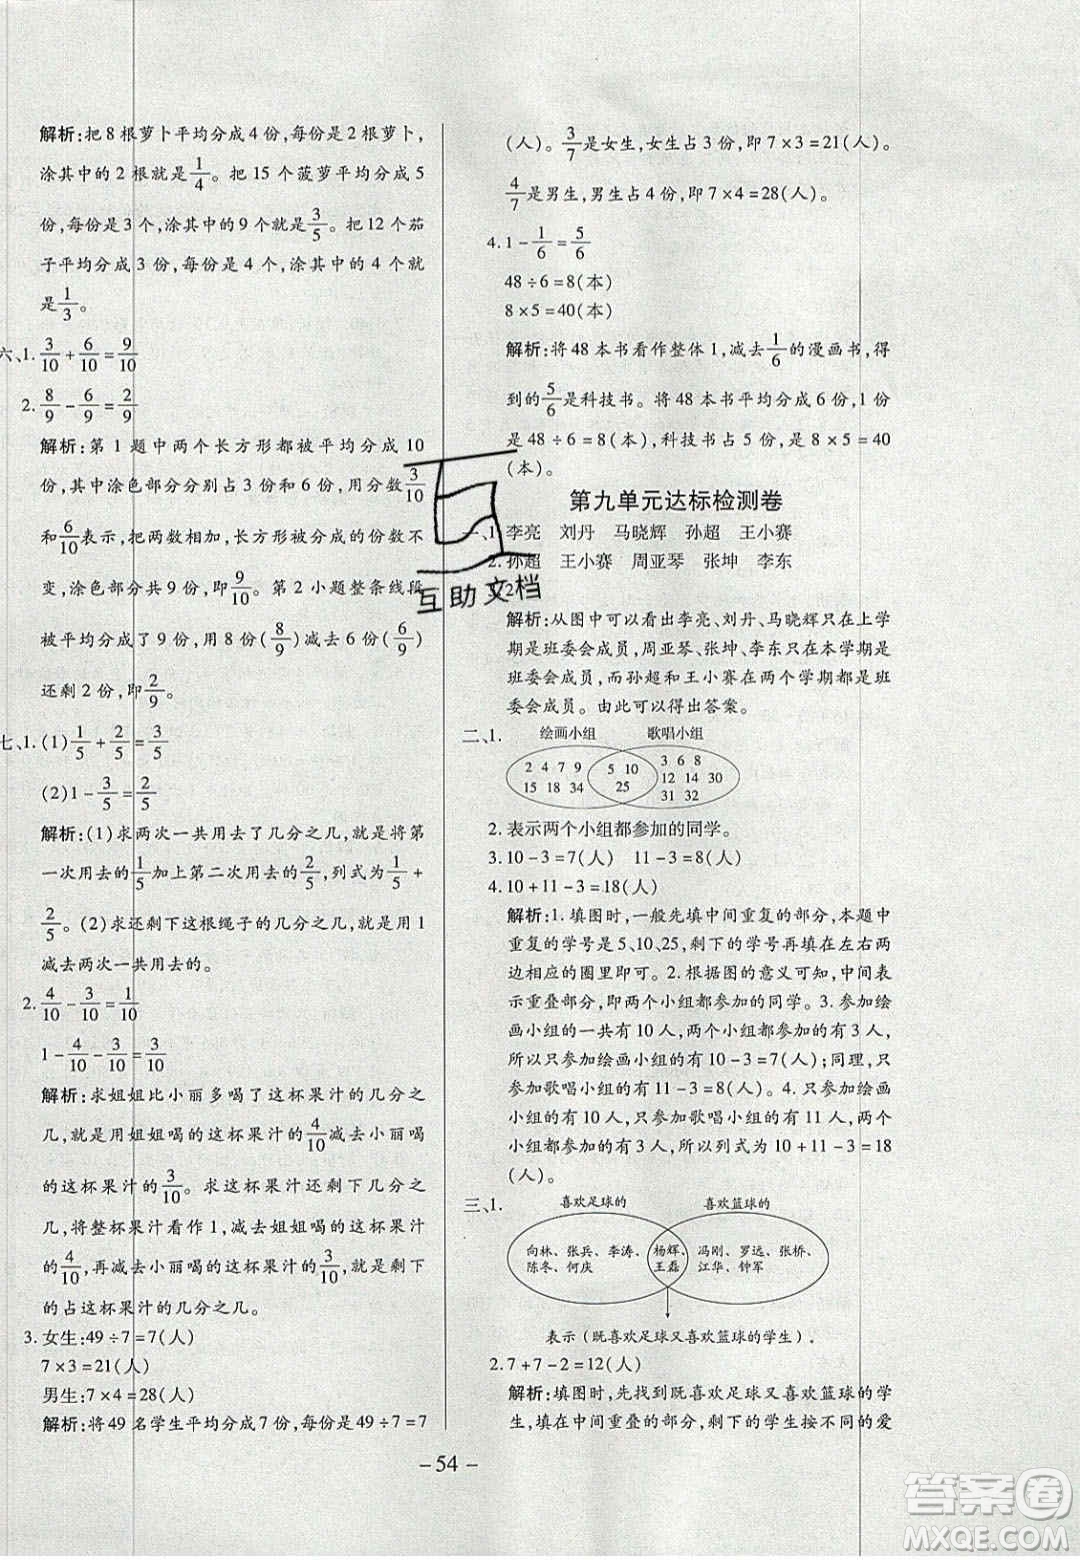 解析:把 8 根萝卜平均分成 4 份,每份是 2 根萝卜,
涂其中的 2 根就是1/4。把 15 个菠萝平均分成 5
份,每份是 3 个,涂其中的 9 个就是3/5。把 12 个茄
子平均分成 3 份,每份是 4 个,涂其中的 4 个就
是1/3。
六、1. 3/10+6/10=9/10
2. 8/9-6/9=2/9
解析:第 1 题中两个长方形都被平均分成 10
份,其中涂色部分分别占 3 份和 6 份,用分数3/10
和6/10表示,把两数相加,长方形被分成的份数不
变,涂色部分共 9 份,即9/10。第 2 小题整条线段
被平均分成了 9 份,用 8 份(8/9)减去 6 份(6/9)
还剩 2 份,即2/9。
七、1. (1)1/5+2/5=3/5
(2)1-3/5=2/5
解析:(1)求两次一共用去了几分之几,就是将第
一次用去的1/5加上第二次用去的2/5,列式为1/5+
2/5。(2)求还剩下这根绳子的几分之几,就是用 1
减去两次一共用去的。
2. 4/10-3/10=1/10
1-4/10-3/10=3/10
解析:求姐姐比小丽多喝了这杯果汁的几分之
几,就是用姐姐喝的这杯果汁的4/10减去小丽喝
的这杯果汁的3/10。求这杯果汁还剩下几分之
几,将整杯果汁看作 1,减去姐姐喝的这杯果汁的
4/10,再减去小丽喝的这杯果汁的3/10,就是剩下
的占这杯果汁的几分之几。
3. 女生:49÷7=7(人)
7×3=21(人)
男生:7×4=28(人)
解析:将 49 名学生平均分成 7 份,每份是 49÷7=7
(人)。3/7是女生,女生占 3 份,即 7×3=21(人)。
4/7是男生,男生占 4 份,即 7×4=28(人)。
4. 1-1/6=5/6
48÷6=8(本)
8×5=40(本)
解析:将 48 本书看作整体 1,减去1/6的漫画书,得
到的5/6是科技书。将 48 本书平均分成 6 份,1 份
是 48÷6=8(本),科技书占 5 份,是 8×5=40
(本)。
第九单元达标检测卷
一、1. 李亮 刘丹 马晓辉 孙超 王小赛
2. 孙超 王小赛 周亚琴 张坤 李东
2
解析:从图中可以看出李亮、刘丹、马晓辉只在上学
期是班委会成员,周亚琴、张坤、李东只在本学期是
班委会成员,而孙超和王小赛在两个学期都是班
委会成员。由此可以得出答案。
二、1.
绘画小组 歌唱小组
2 4 7 9
15 18 34
5 10
25
3 6 8
12 14 30
31 32
2. 表示两个小组都参加的同学。
3. 10-3=7(人) 11-3=8(人)
4. 10+11-3=18(人)
解析:1. 填图时,一般先填中间重复的部分,本题中
重复的学号是 5、10、25,剩下的学号再填在左右两
边相应的圈里即可。2. 根据图的意义可知,中间表
示重叠部分,即两个小组都参加的同学。3. 参加绘
画小组的一共有 10 人,两个小组都参加的有 3 人,
所以只参加绘画小组的有 10-3=7(人);同理,只
参加歌唱小组的有 11-3=8(人)。4. 只参加绘画
小组的有 10 人,只参加歌唱小组的有 11 人,两个
小组都参加的有 3 人,所以列式为 10+11-3=18
(人)。
三、1.
喜欢足球的 喜欢篮球的
向林、张兵、李涛、
陈冬、何庆
杨辉、
王磊
冯刚、罗远、张桥、
江华、钟军
表示(既喜欢足球又喜欢篮球的学生)。
2. 7+7-2=12(人)
解析:填图时,先找到既喜欢足球又喜欢篮球的学
生,填在中间重叠的部分,剩下的学生按不同的爱
- 54 -
互助文档
答案圈
MXQE.COM